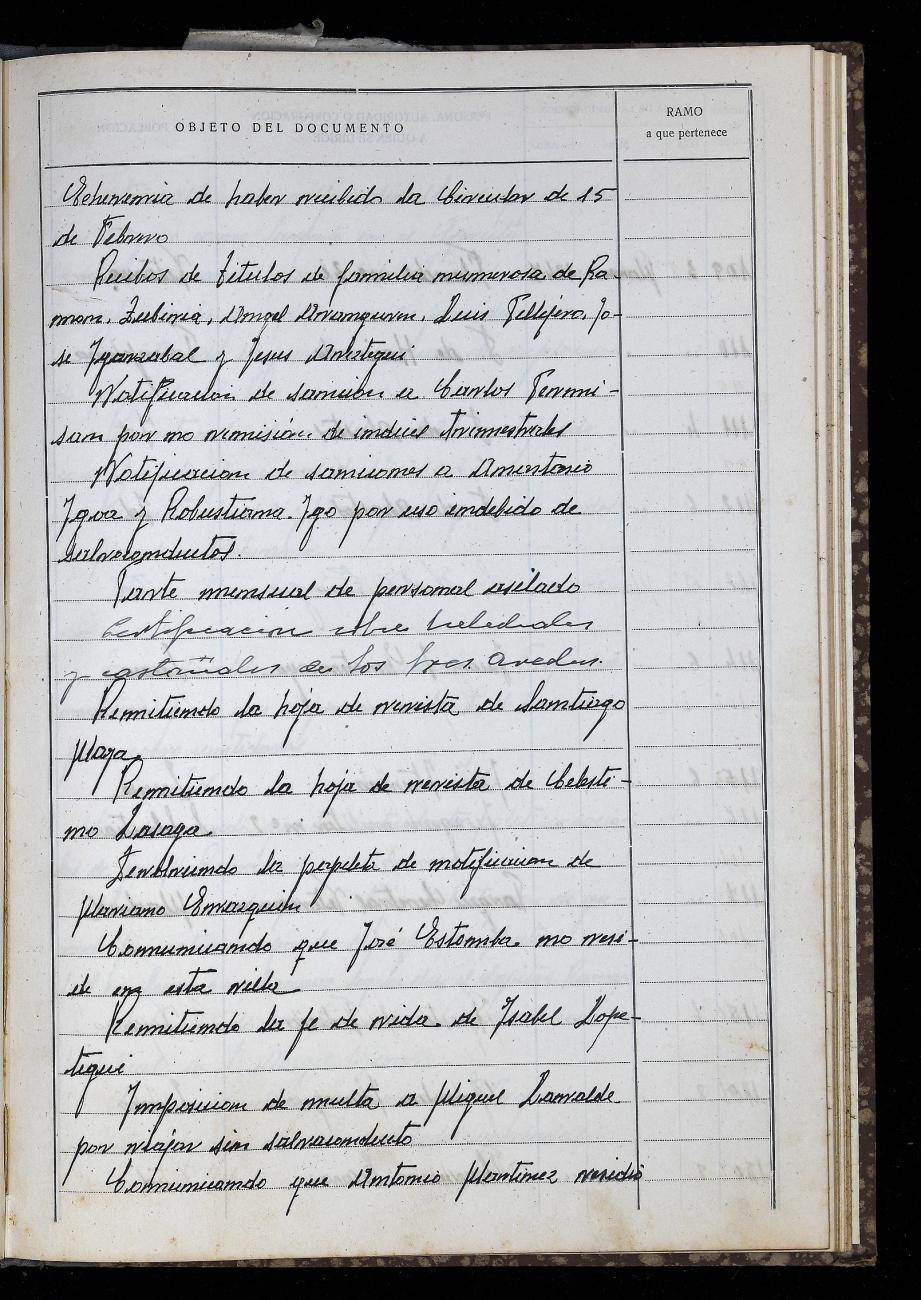 OBJETO DEL DOCUMENTO
RAMO
a que pertenece
Echevarria de haber recibido la Circular de 15
de Febrero
Recibos de titulos de familia numerosa de Ra
mon Zubiria, Angel Aranguren, Luis Tellejera, Jo-
se Ygarzabal y Jesus Areztegui
Notificacion de sancion a Carlos
por no remision de indices trimestrales
Notificacion de sanciones a
y Robustiana por uso indebido de
salvoconductos.
Parte mensual de personal asilado
Certificación sobre
y castañales de los tres
Remitiendo la hoja de revista de Santiago
Plaza
Remitiendo la hoja de revista de Celesti-
no Lasaga
Devolviendo la papeleta de notificacion de
Mariano Emazquin
Comunicando que José Estomba no resi-
de en esta villa
Remitiendo la fe de vida de Ysabel Lope-
tegui
Imposicion de multa a Miguel
por viajar sin salvoconducto
Comunicando que Antonio Martinez residió